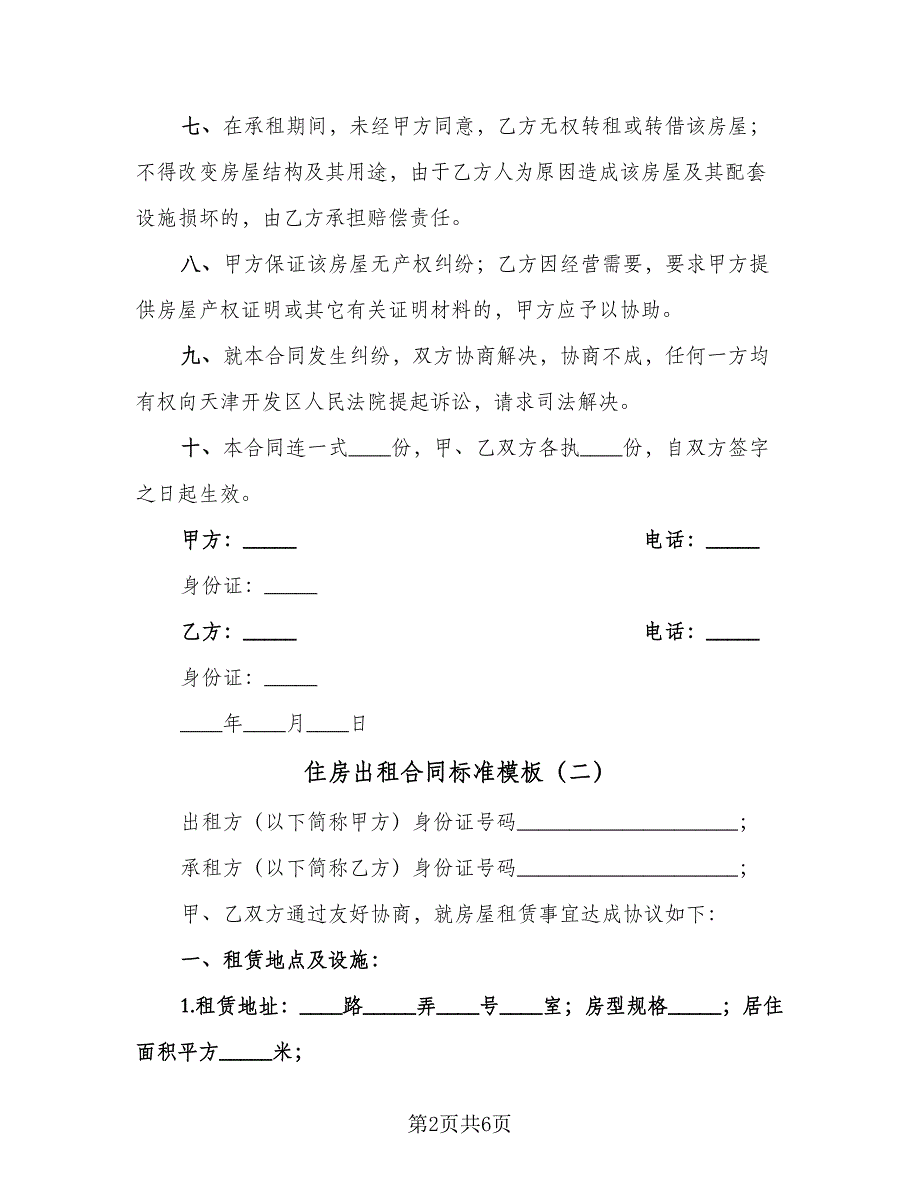 七、在承租期间，未经甲方同意，乙方无权转租或转借该房屋；
不得改变房屋结构及其用途，由于乙方人为原因造成该房屋及其配套
设施损坏的，由乙方承担赔偿责任。
八、甲方保证该房屋无产权纠纷；乙方因经营需要，要求甲方提
供房屋产权证明或其它有关证明材料的，甲方应予以协助。
九、就本合同发生纠纷，双方协商解决，协商不成，任何一方均
有权向天津开发区人民法院提起诉讼，请求司法解决。
十、本合同连一式____份，甲、乙双方各执____份，自双方签字
之日起生效。
甲方：_____ 电话：_____
身份证：_____
乙方：_____ 电话：_____
身份证：_____
____年____月____日
住房出租合同标准模板（二）
出租方（以下简称甲方）身份证号码_____________________；
承租方（以下简称乙方）身份证号码_____________________；
甲、乙双方通过友好协商，就房屋租赁事宜达成协议如下：
一、租赁地点及设施：
1.租赁地址：____路_____弄____号____室；房型规格_____；居住
面积平方_____米；
第2页共6页